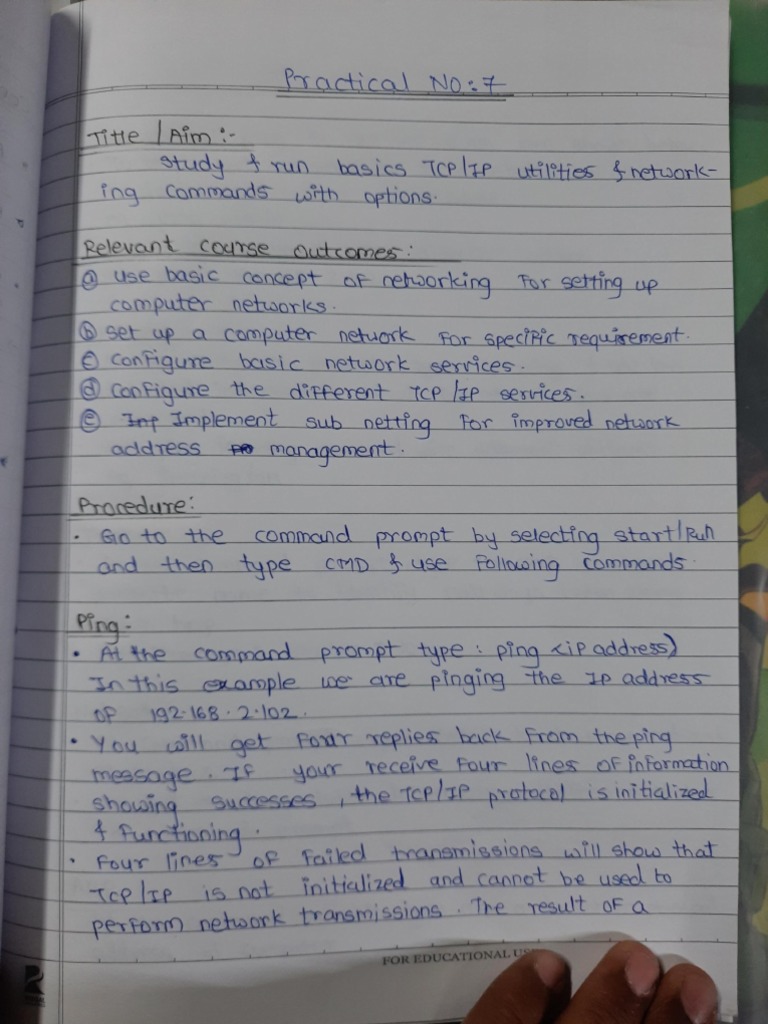 Practical NO:7
Title / Aim :-
study & run basics TCP/IP utilities & network-
ing commands with options.
Relevant course outcomes:
ⓐ use basic concept of networking for setting up
computer networks.
ⓑ set up a computer network for specific requirement.
ⓒ configure basic network services.
ⓓ configure the different TCP/IP services.
ⓔ Implement sub netting for improved network
address management.
Procedure:
• Go to the command prompt by selecting start/Run
and then type CMD & use following commands.
Ping:
• At the command prompt type: ping <ip address)
In this example we are pinging the IP address
of 192.168.2.102.
• You will get four replies back from the ping
message. If your receive four lines of information
showing successes, the TCP/IP protocol is initialized
& functioning.
• Four lines of failed transmissions will show that
TCP/IP is not initialized and cannot be used to
perform network transmissions. The result of a
FOR EDUCATIONAL